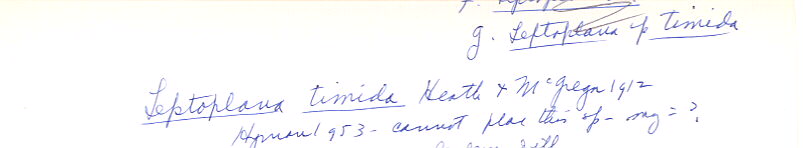 g. Leptoplana sp timida
Leptoplana timida Heath & McGregor 1912
Hyman 1953 - cannot place this sp - may = ?